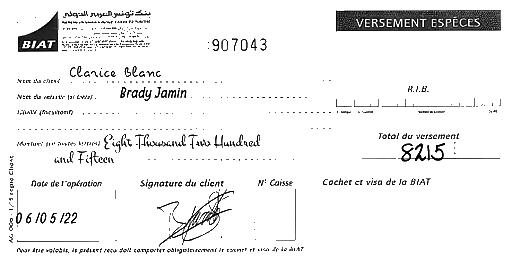 بنك تونس العربي الدولي
BIAT
:907043
VERSEMENT ESPÈCES
Nom du client Clarice Blanc
Nom du remettant (si tiers) Brady Jamin
R.I.B.
Libellé (facultatif)
Montant (en toutes lettres) Eight Thousand Two Hundred
and Fifteen
Total du versement
8215
Date de l'opération Signature du client N° Caisse Cachet et visa de la BIAT
06/05/22
Pour être valable, le présent reçu doit comporter obligatoirement le cachet et visa de la BIAT